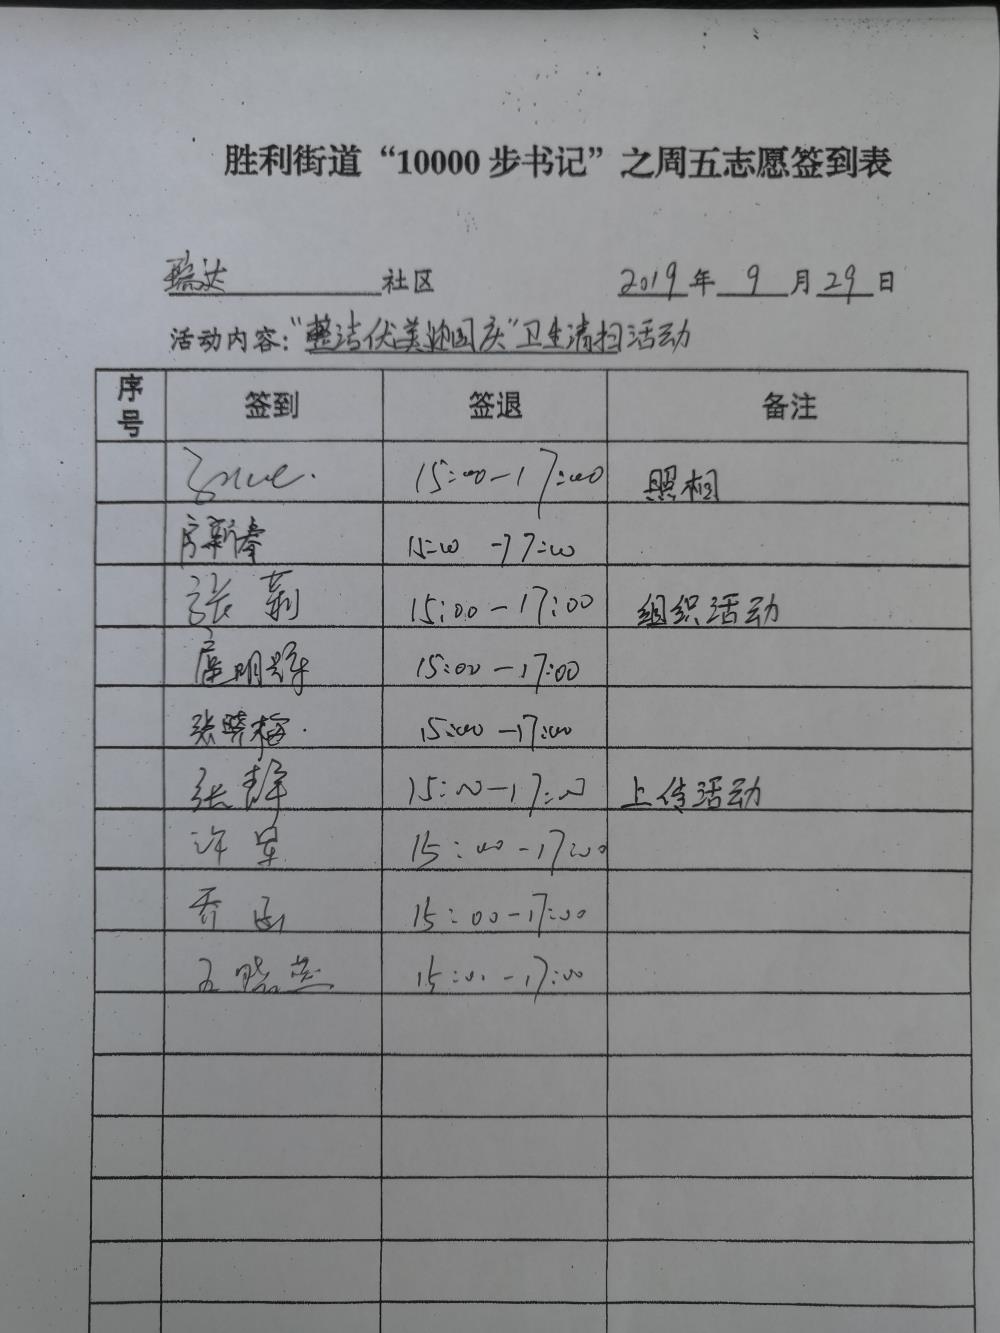 胜利街道“10000步书记”之周五志愿签到表
瑞达 社区 2019年 9 月 29 日
活动内容：“整洁优美迎国庆”卫生清扫活动
序号 签到 签退 备注
15:00-17:00 照相
15:00-17:00
张莉 15:00-17:00 组织活动
15:00-17:00
张晓梅 15:00-17:00
张静 15:00-17:00 上传活动
许军 15:00-17:00
乔 15:00-17:00
王晓燕 15:00-17:00